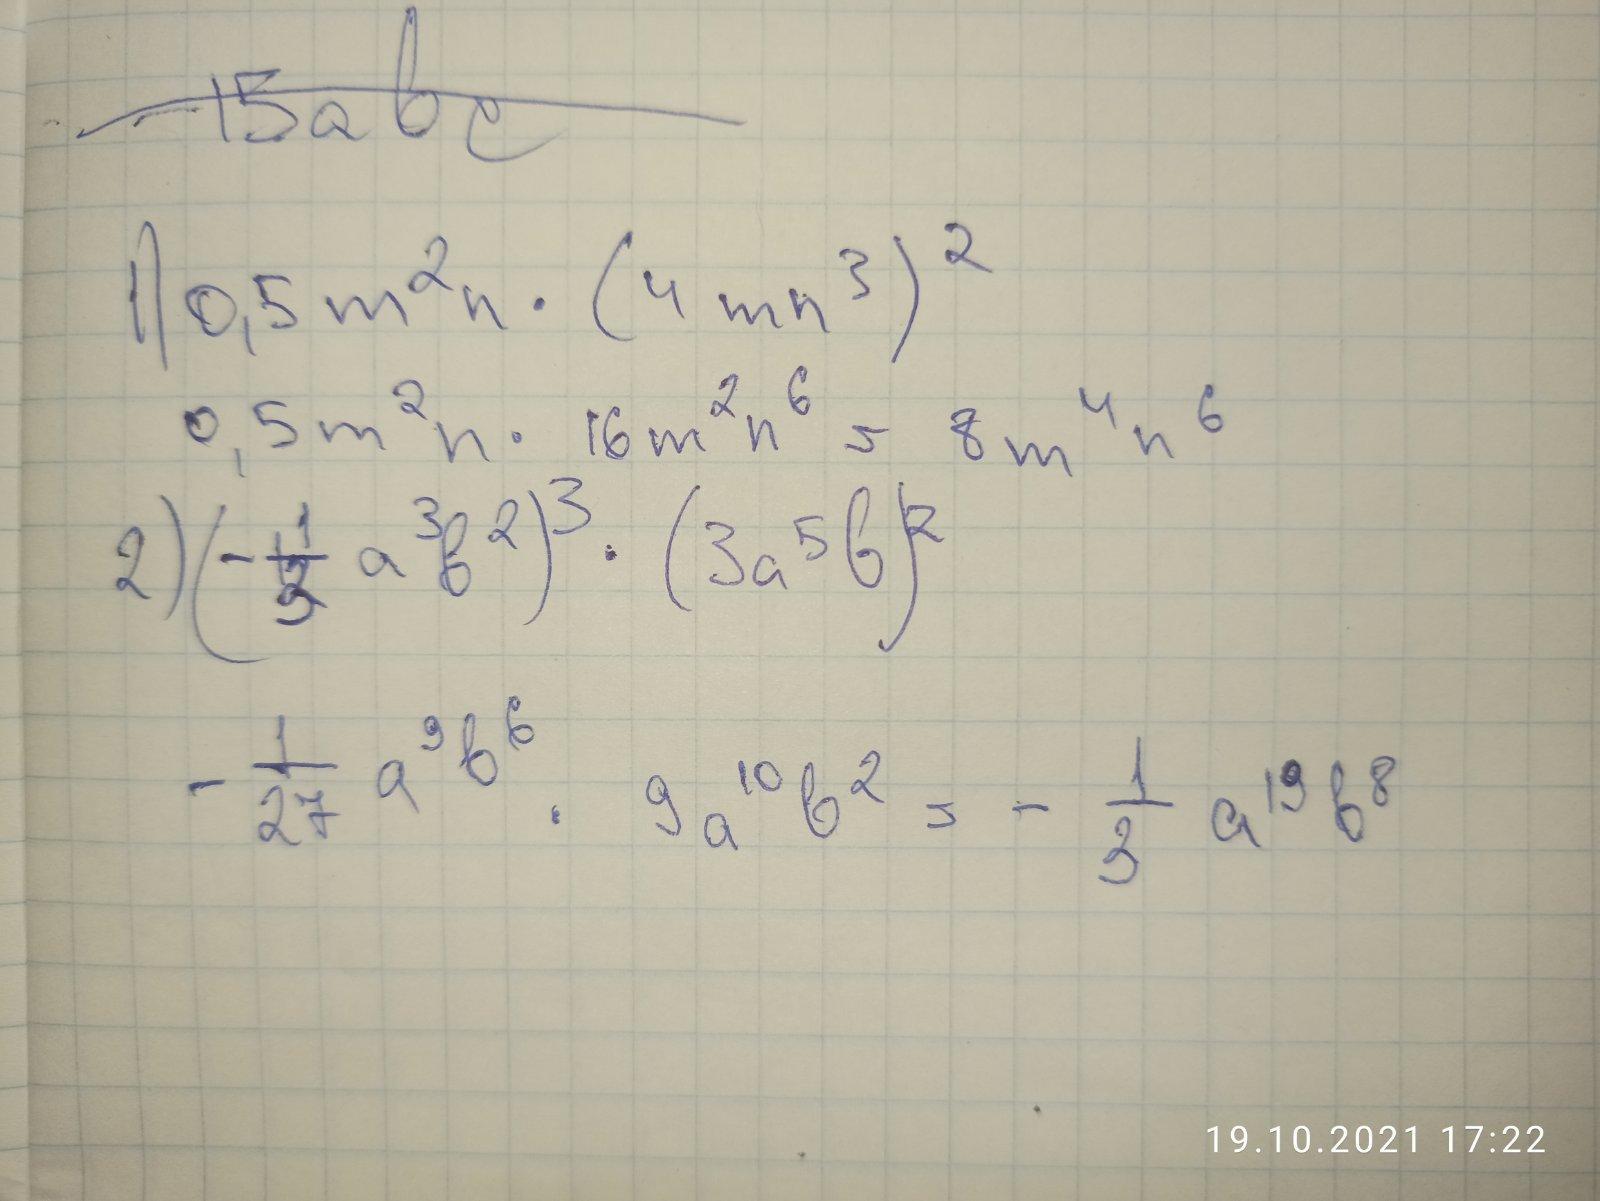 -15abc
1) 0,5m²n · (4mn³)²
0,5m²n · 16m²n⁶ = 8m⁴n⁶
2) (-1/3 a³b²)³ · (3a⁵b)²
-1/27 a⁹b⁶ · 9a¹⁰b² = -1/3 a¹⁹b⁸
19.10.2021 17:22